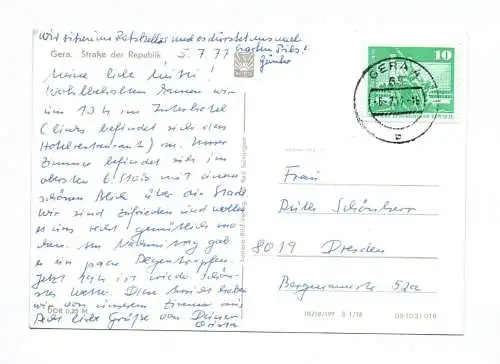 Wir sitzen im Ratskeller und es dürstet uns nach
Gera. Straße der Republik 5.7.77 Günter
Meine liebe Mutti!
Wohlbehalten kamen wir
um 13 h im Interhotel
(links befindet sich das
Hotelrestaurant) an. Unser
Zimmer befindet sich im
obersten 6. Stock mit einem
schönen Blick über die Stadt.
Wir sind zufrieden und wollen
es uns recht gemütlich ma-
chen. Am Vormittag gab
es ein paar Regentropfen.
Jetzt 14 h ist wieder schön-
stes Wetter. Diese
wir von unserem Zimmer aus
Liebe Grüße von Deiner
DDR 0,25 M
GERA 1
10
Frau
Ruth Schönherr
8019 Dresden
Bergmannstr. 52a
III/18/197 S 1/76 09 10 31 019